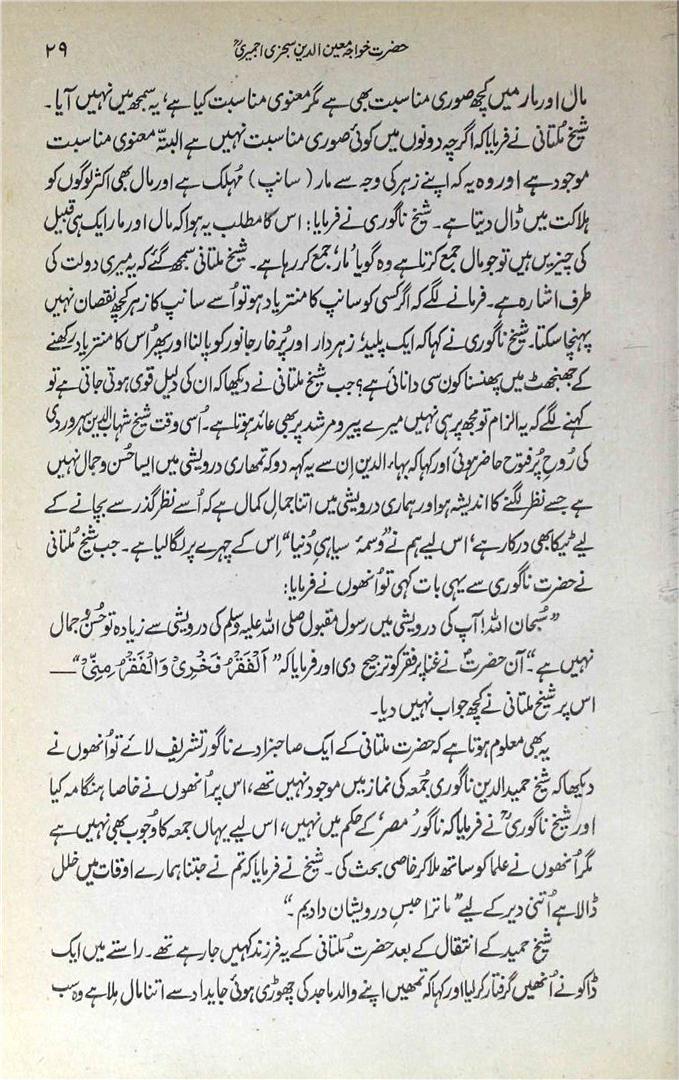 ۲۹
حضرت خواجہ معین الدین سجزی اجمیریؒ
مال اور مار میں کچھ صوری مناسبت بھی ہے مگر معنوی مناسبت کیا ہے، یہ سمجھ میں نہیں آیا۔
شیخ مُلتانی نے فرمایا کہ اگرچہ دونوں میں کوئی صوری مناسبت نہیں ہے البتّہ معنوی مناسبت
موجود ہے اور وہ یہ کہ اپنے زہر کی وجہ سے مار (سانپ) مُہلک ہے اور مال بھی اکثر لوگوں کو
ہلاکت میں ڈال دیتا ہے۔ شیخ ناگوری نے فرمایا: اس کا مطلب یہ ہوا کہ مال اور مار ایک ہی قبیل
کی چیزیں ہیں تو جو مال جمع کرتا ہے وہ گویا ’مار‘ جمع کر رہا ہے۔ شیخ ملتانی سمجھ گئے کہ یہ میری دولت کی
طرف اشارہ ہے۔ فرمانے لگے کہ اگر کسی کو سانپ کا منتر یاد ہو تو اُسے سانپ کا زہر کچھ نقصان نہیں
پہنچا سکتا۔ شیخ ناگوری نے کہا کہ ایک پلید، زہردار اور پُرخار جانور کو پالنا اور پھر اُس کا منتر یاد رکھنے
کے جھنجھٹ میں پھنسنا کون سی دانائی ہے؟ جب شیخ ملتانی نے دیکھا کہ ان کی دلیل قوی ہوتی جاتی ہے تو
کہنے لگے کہ یہ الزام تو مجھ پر ہی نہیں میرے پیر و مرشد پر بھی عائد ہوتا ہے۔ اُسی وقت شیخ شہاب الدین سہروردی
کی رُوح پُر فتوح حاضر ہوئی اور کہا کہ بہاء الدین اِن سے یہ کہہ دو کہ تمھاری درویشی میں ایسا حُسن و جمال نہیں
ہے جسے نظر لگنے کا اندیشہ ہو اور ہماری درویشی میں اتنا جمال کمال ہے کہ اُسے نظرِ گذر سے بچانے کے
لیے ٹیکا بھی درکار ہے، اس لیے ہم نے ”وسمۂ سیاہیِ دُنیا“ اِس کے چہرے پر لگا لیا ہے۔ جب شیخ مُلتانی
نے حضرت ناگوری سے یہی بات کہی تو اُنھوں نے فرمایا:
”سُبحان اللہ! آپ کی درویشی میں رسول مقبول صلی اللہ علیہ وسلم کی درویشی سے زیادہ تو حُسن و جمال
نہیں ہے۔“ آں حضرتؐ نے غنا پر فقر کو ترجیح دی اور فرمایا کہ ”اَلْفَقْرُ فَخْرِیْ وَالْفَقْرُ مِنِّیْ“ —
اس پر شیخ ملتانی نے کچھ جواب نہیں دیا۔
یہ بھی معلوم ہوتا ہے کہ حضرت ملتانی کے ایک صاحبزادے ناگور تشریف لائے تو اُنھوں نے
دیکھا کہ شیخ حمید الدین ناگوری جُمعہ کی نماز میں موجود نہیں تھے، اس پر اُنھوں نے خاصا ہنگامہ کیا
اور شیخ ناگوریؒ نے فرمایا کہ ناگور ’مصر‘ کے حکم میں نہیں، اس لیے یہاں جمعہ کا وُجوب بھی نہیں ہے
مگر اُنھوں نے علما کو ساتھ ملا کر خاصی بحث کی۔ شیخ نے فرمایا کہ تم نے جتنا ہمارے اوقات میں خلل
ڈالا ہے اُتنی دیر کے لیے ”ما ترا حبسِ درویشاں دادیم۔“
شیخ حمید کے انتقال کے بعد حضرت مُلتانی کے یہ فرزند کہیں جا رہے تھے۔ راستے میں ایک
ڈاکو نے اُنھیں گرفتار کر لیا اور کہا کہ تمھیں اپنے والد ماجد کی چھوڑی ہوئی جایداد سے اتنا مال مِلا ہے وہ سب